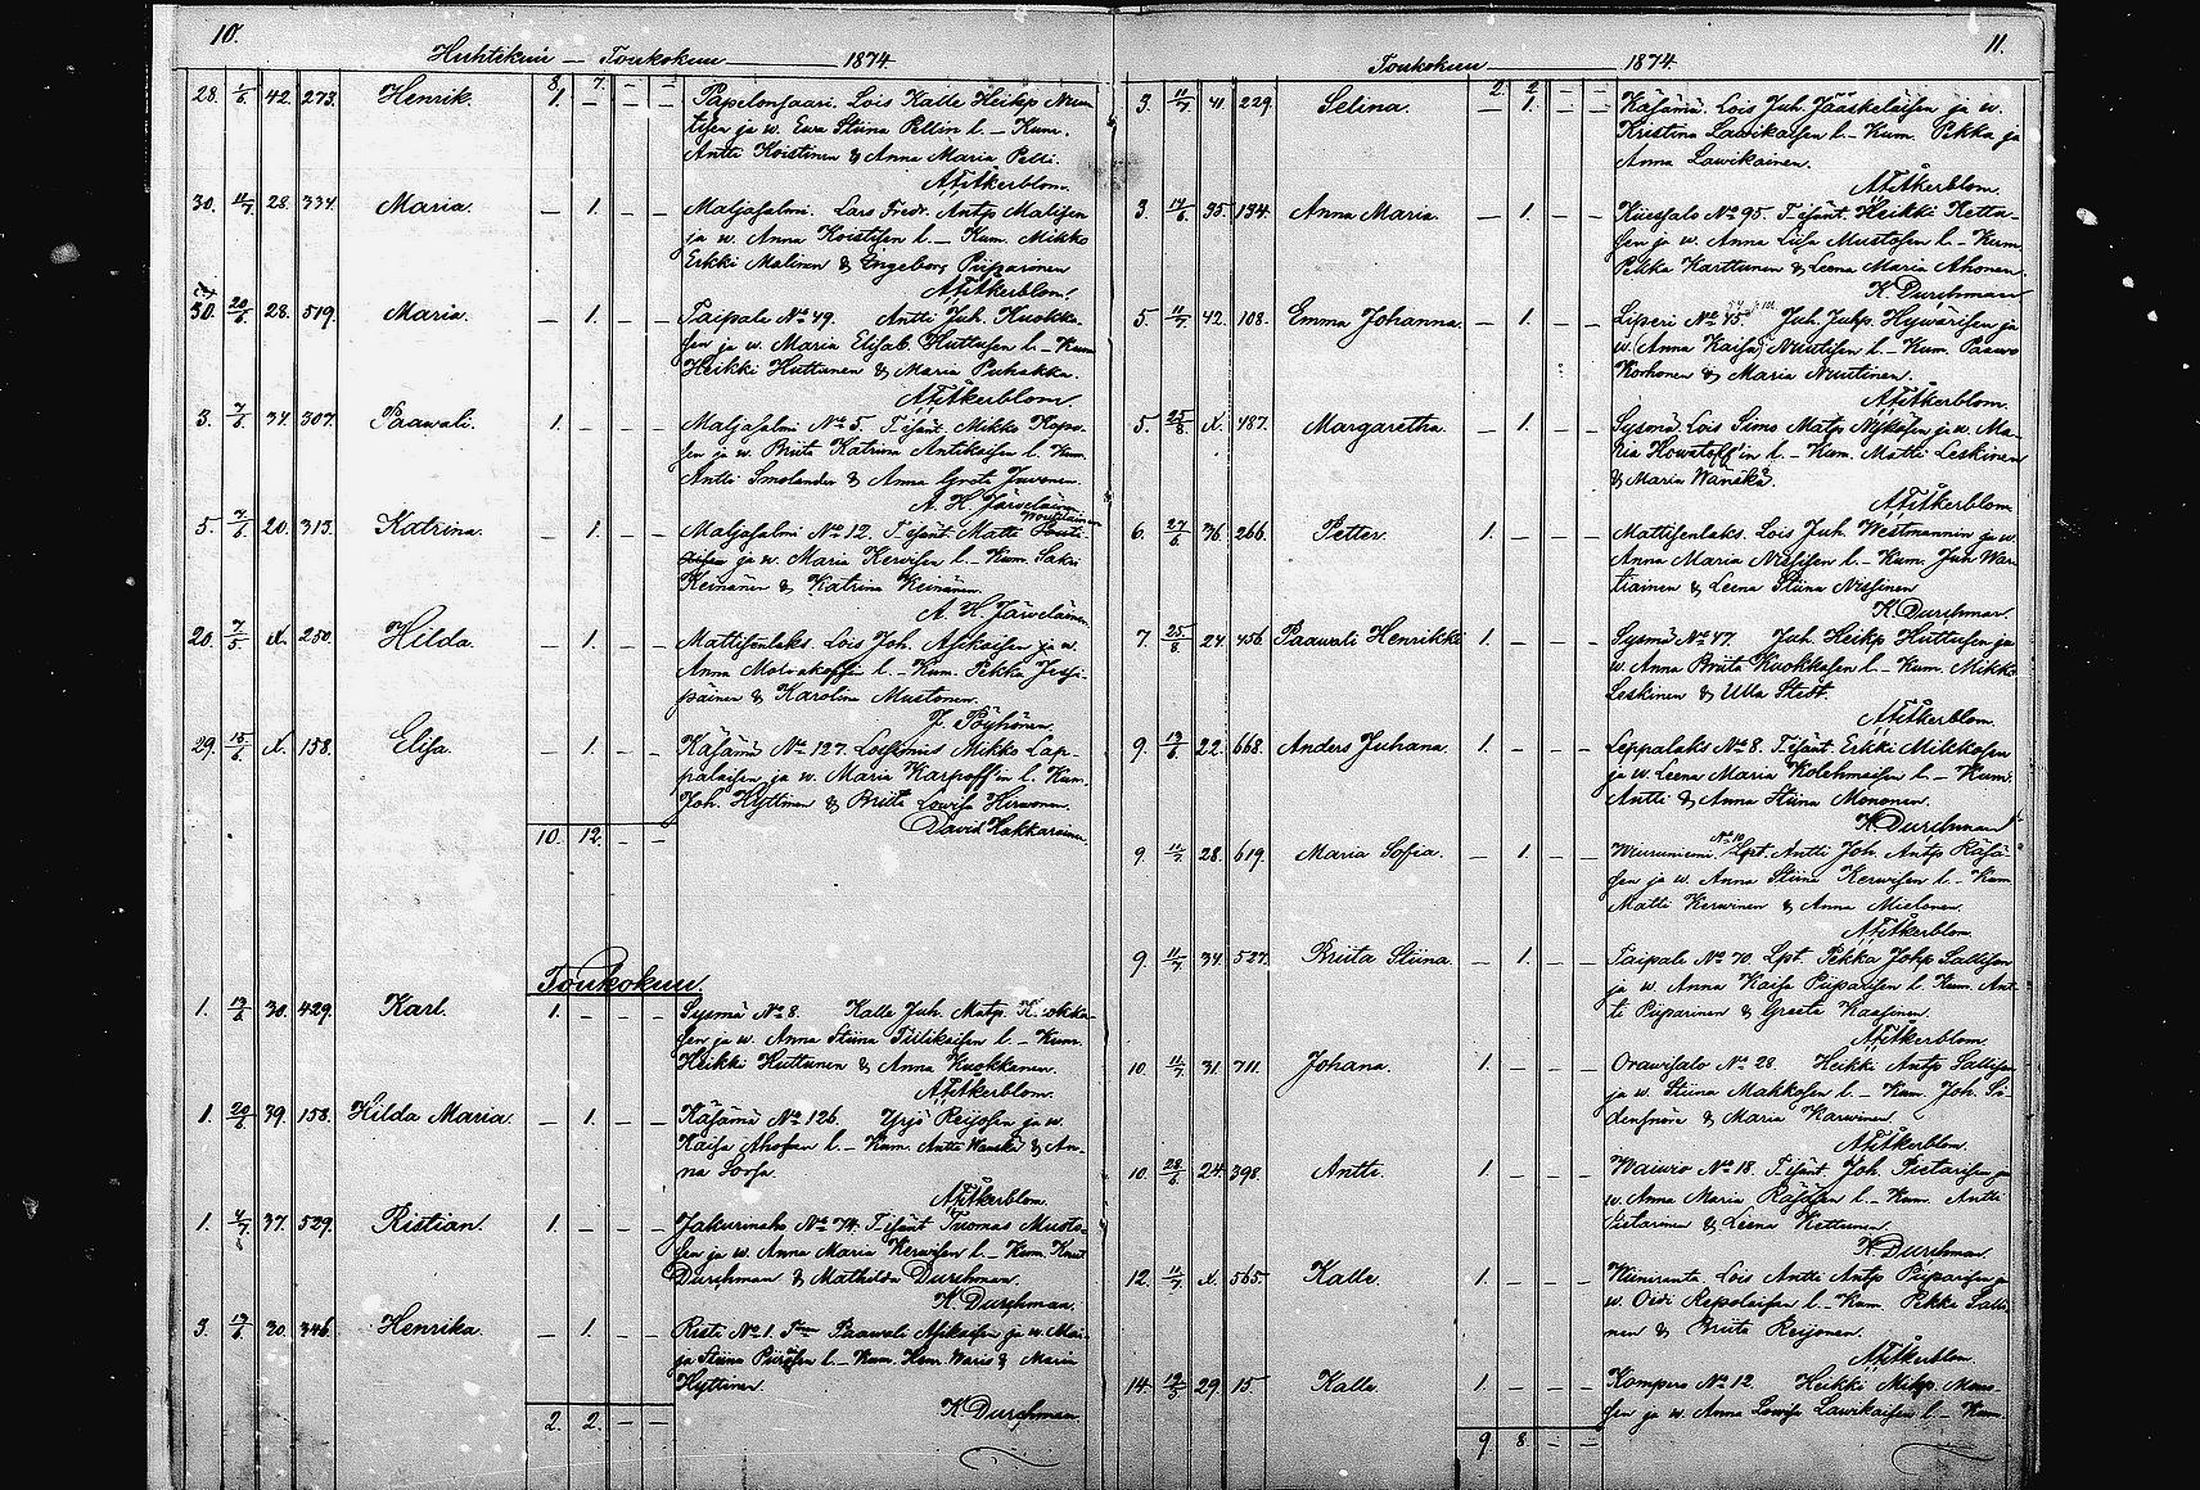 10.
Huhtikuu — Toukokuu 1874.
8. 7. — —
28. 1/6 42. 273. Henrik. 1. — — — Papelonsaari. Lois Kalle Heikp Num
tisen ja w. Ewa Stiina Pellin l. — Kum.
Antti Koistinen & Anna Maria Pelli.
A.F. Åkerblom.
30. 11/7 28. 334. Maria. — 1. — — Maljasalmi. Lars Fredr. Antp Malisen
ja w. Anna Koistisen l. — Kum. Mikko
Erkki Malinen & Engeborg Piiparinen
A.F. Åkerblom.
30. 20/6 28. 519. Maria. — 1. — — Taipale No 49. Antti Juh. Kuokka-
sen ja w. Maria Elisab. Huttusen l. — Kum
Heikki Huttunen & Maria Puhakka.
A.F. Åkerblom.
3. 7/6 34. 307. Paawali. 1. — — — Maljasalmi No 5. T. isänt. Mikko Kapo-
sen ja w. Briita Katrina Antikaisen l. Kum.
Antti Smolander & Anna Greta Juvonen.
A. H. Järveläinen
5. 7/6 20. 313. Katrina. — 1. — — Maljasalmi No 12. T. isänt. Matti
Woutilainen
ja w. Maria Kervisen l. — Kum. Sakri
Keinänen & Katrina Keinänen.
A. H. Järveläinen.
20. 7/5 X. 250. Hilda. — 1. — — Mattisenlaks. Lois Joh. Asikaisen ja w.
Anna l. — Kum. Pekka Jussi-
päinen & Karolina Mustonen.
J. Pöyhönen.
29. 15/6 X. 158. Elisa. — 1. — — Käsämä No 127. Loismies Mikko Lap-
palaisen ja w. Maria Karpoff'in l. Kum.
Joh. Hyttinen & Briita Lowisa Hirwonen.
David Hakkarainen.
10. 12. — —
Toukokuu.
1. 13/6 30. 429. Karl. 1. — — — Sysmä No 8. Kalle Juh. Matp. Kuokka-
sen ja w. Anna Stiina Tiilikaisen l. — Kum.
Heikki Huttunen & Anna Kuokkanen.
A.F. Åkerblom.
1. 20/6 39. 158. Hilda Maria. — 1. — — Käsämä No 126. Yrjö Reijosen ja w.
Kaisa Ahosen l. — Kum. Antti Wänskä & An-
na Sorsa.
A.F. Åkerblom.
1. 4/7 37. 529. Ristian. 1. — — — Jakurinaho No 74. T. isänt Tuomas Musto-
sen ja w. Anna Maria Kerwisen l. — Kum. Knut
Durchman & Mathilda Durchman.
K. Durchman.
3. 13/6 30. 346. Henrika. — 1. — — Risti No 1. Paawali Asikaisen ja w. Mai-
ja Stiina l. — Kum. Henr. Waris & Maria
Hyttinen.
K. Durchman.
2. 2. — —
11.
Toukokuu 1874.
2. 2. — —
3. 11/7 41. 229. Selina. — 1. — — Käsämä. Lois Juh. Jääskeläisen ja w.
Kristina Lawikaisen l. — Kum. Pekka ja
Anna Lawikainen.
A.F. Åkerblom.
3. 14/6 35. 134. Anna Maria. — 1. — — Kuessalo No 95. T. isänt. Heikki Kettu-
sen ja w. Anna Liisa Mustosen l. — Kum.
Pekka Karttunen & Leena Maria Ahonen.
K. Durchman
5. 11/7 42. 108. Emma Johanna. — 1. — — Liperi No 45. Juh. Juhp. Hywärisen ja
w. (Anna Kaisa) Nuutisen l. — Kum. Paawo
Korhonen & Maria Nuutinen.
A.F. Åkerblom.
5. 25/8 X. 487. Margaretha. — 1. — — Sysmä. Lois Simo Matp Nykäsen ja w. Ma-
ria Howatoff'in l. — Kum. Matti Leskinen
& Maria Wänskä.
A.F. Åkerblom
6. 27/6 36. 266. Petter. 1. — — — Mattisenlaks. Lois Juh. Westmannin ja w.
Anna Maria Nissisen l. — Kum. Juh War-
tiainen & Leena Stiina Nissinen
K. Durchman.
7. 25/8 24. 456. Paawali Henrikki 1. — — — Sysmä No 47. Juh. Heikp Huttusen ja
w. Anna Briita Kuokkasen l. — Kum. Mikko
Leskinen & Ulla Stedt.
A.F. Åkerblom.
9. 13/6 22. 668. Anders Juhana. 1. — — — Leppalaks No 8. T. isänt. Erkki Mikkosen
ja w. Leena Maria Kolehmaisen l. — Kum.
Antti & Anna Stiina Mononen.
K. Durchman
9. 11/7 28. 619. Maria Sofia. — 1. — — Wiuruniemi No 10 Lpt. Antti Joh. Antp Räsä-
sen ja w. Anna Stiina Kerwisen l. — Kum
Matti Kerwinen & Anna Mielonen.
A.F. Åkerblom.
9. 11/7 34. 527. Briita Stiina. — 1. — — Taipale No 70. Lpt. Pekka Johp Sallisen
ja w. Anna Kaisa Piiparisen l. Kum. Ant-
ti Piiparinen & Greeta Kaasinen.
A.F. Åkerblom.
10. 11/7 31. 711. Johana. 1. — — — Orawisalo No 28. Heikki Antp Sallisen
ja w. Stiina Makkosen l. — Kum. Joh. Si-
densnöre & Maria Karwinen.
A.F. Åkerblom.
10. 28/6 24. 398. Antti. 1. — — — Waiwio No 18. T. isänt. Joh. Pietarisen ja
w. Anna Maria Räsäsen l. — Kum. Antti
Pietarinen & Leena Kettunen.
K. Durchman.
12. 11/7 X. 565. Kalle. 1. — — — Wiiniranta. Lois Antti Antp Piiparisen ja
w. Oedi Repolaisen l. — Kum. Pekka Salli-
nen & Briita Reijonen.
A.F. Åkerblom.
14. 19/5 29. 15. Kalle. 1. — — — Kompero No 12. Heikki Mikp. Mons-
sen ja w. Anna Lowisa Lawikaisen l. — Kum.
9. 8. — —